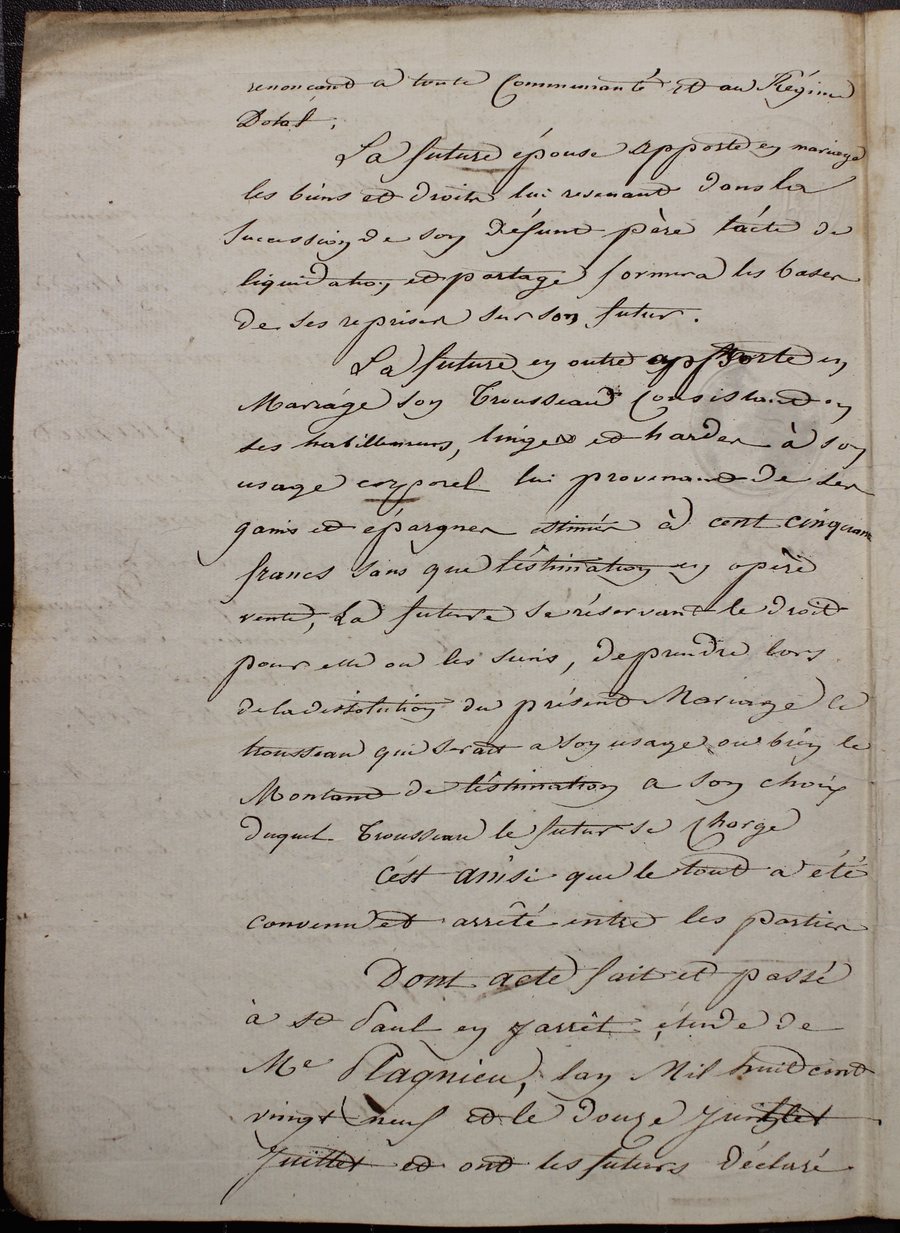 renoncant a toute Communauté et au Régime
Dotal.
La future épouse apporte en mariage
les biens et droits lui revenant dans la
succession de son défunt père l'acte de
liquidation et partage formera les bases
de ses reprises sur son futur.
La future en outre apporte en
Mariage son Trousseau Consistant en
ses habillemens, linges et hardes à son
usage corporel lui provenant de ses
gains et épargnes estimés à cent cinquante
francs sans que l'éstimation en opère
vente, La future se réservant le droit
pour elle ou les siens, de prendre lors
de la dissolution du présent Mariage le
trousseau qui serait a son usage ou bien le
Montant de l'éstimation a son choix
duquel Trousseau le futur se charge
c'ést ainsi que le tout a été
convenu et arrêté entre les parties
Dont acte fait et passé
à St Paul en Jarrêt, étude de
Me Plagnieu, lan Mil huit cent
vingt neuf et le douze
Juillet et ont les futurs déclaré